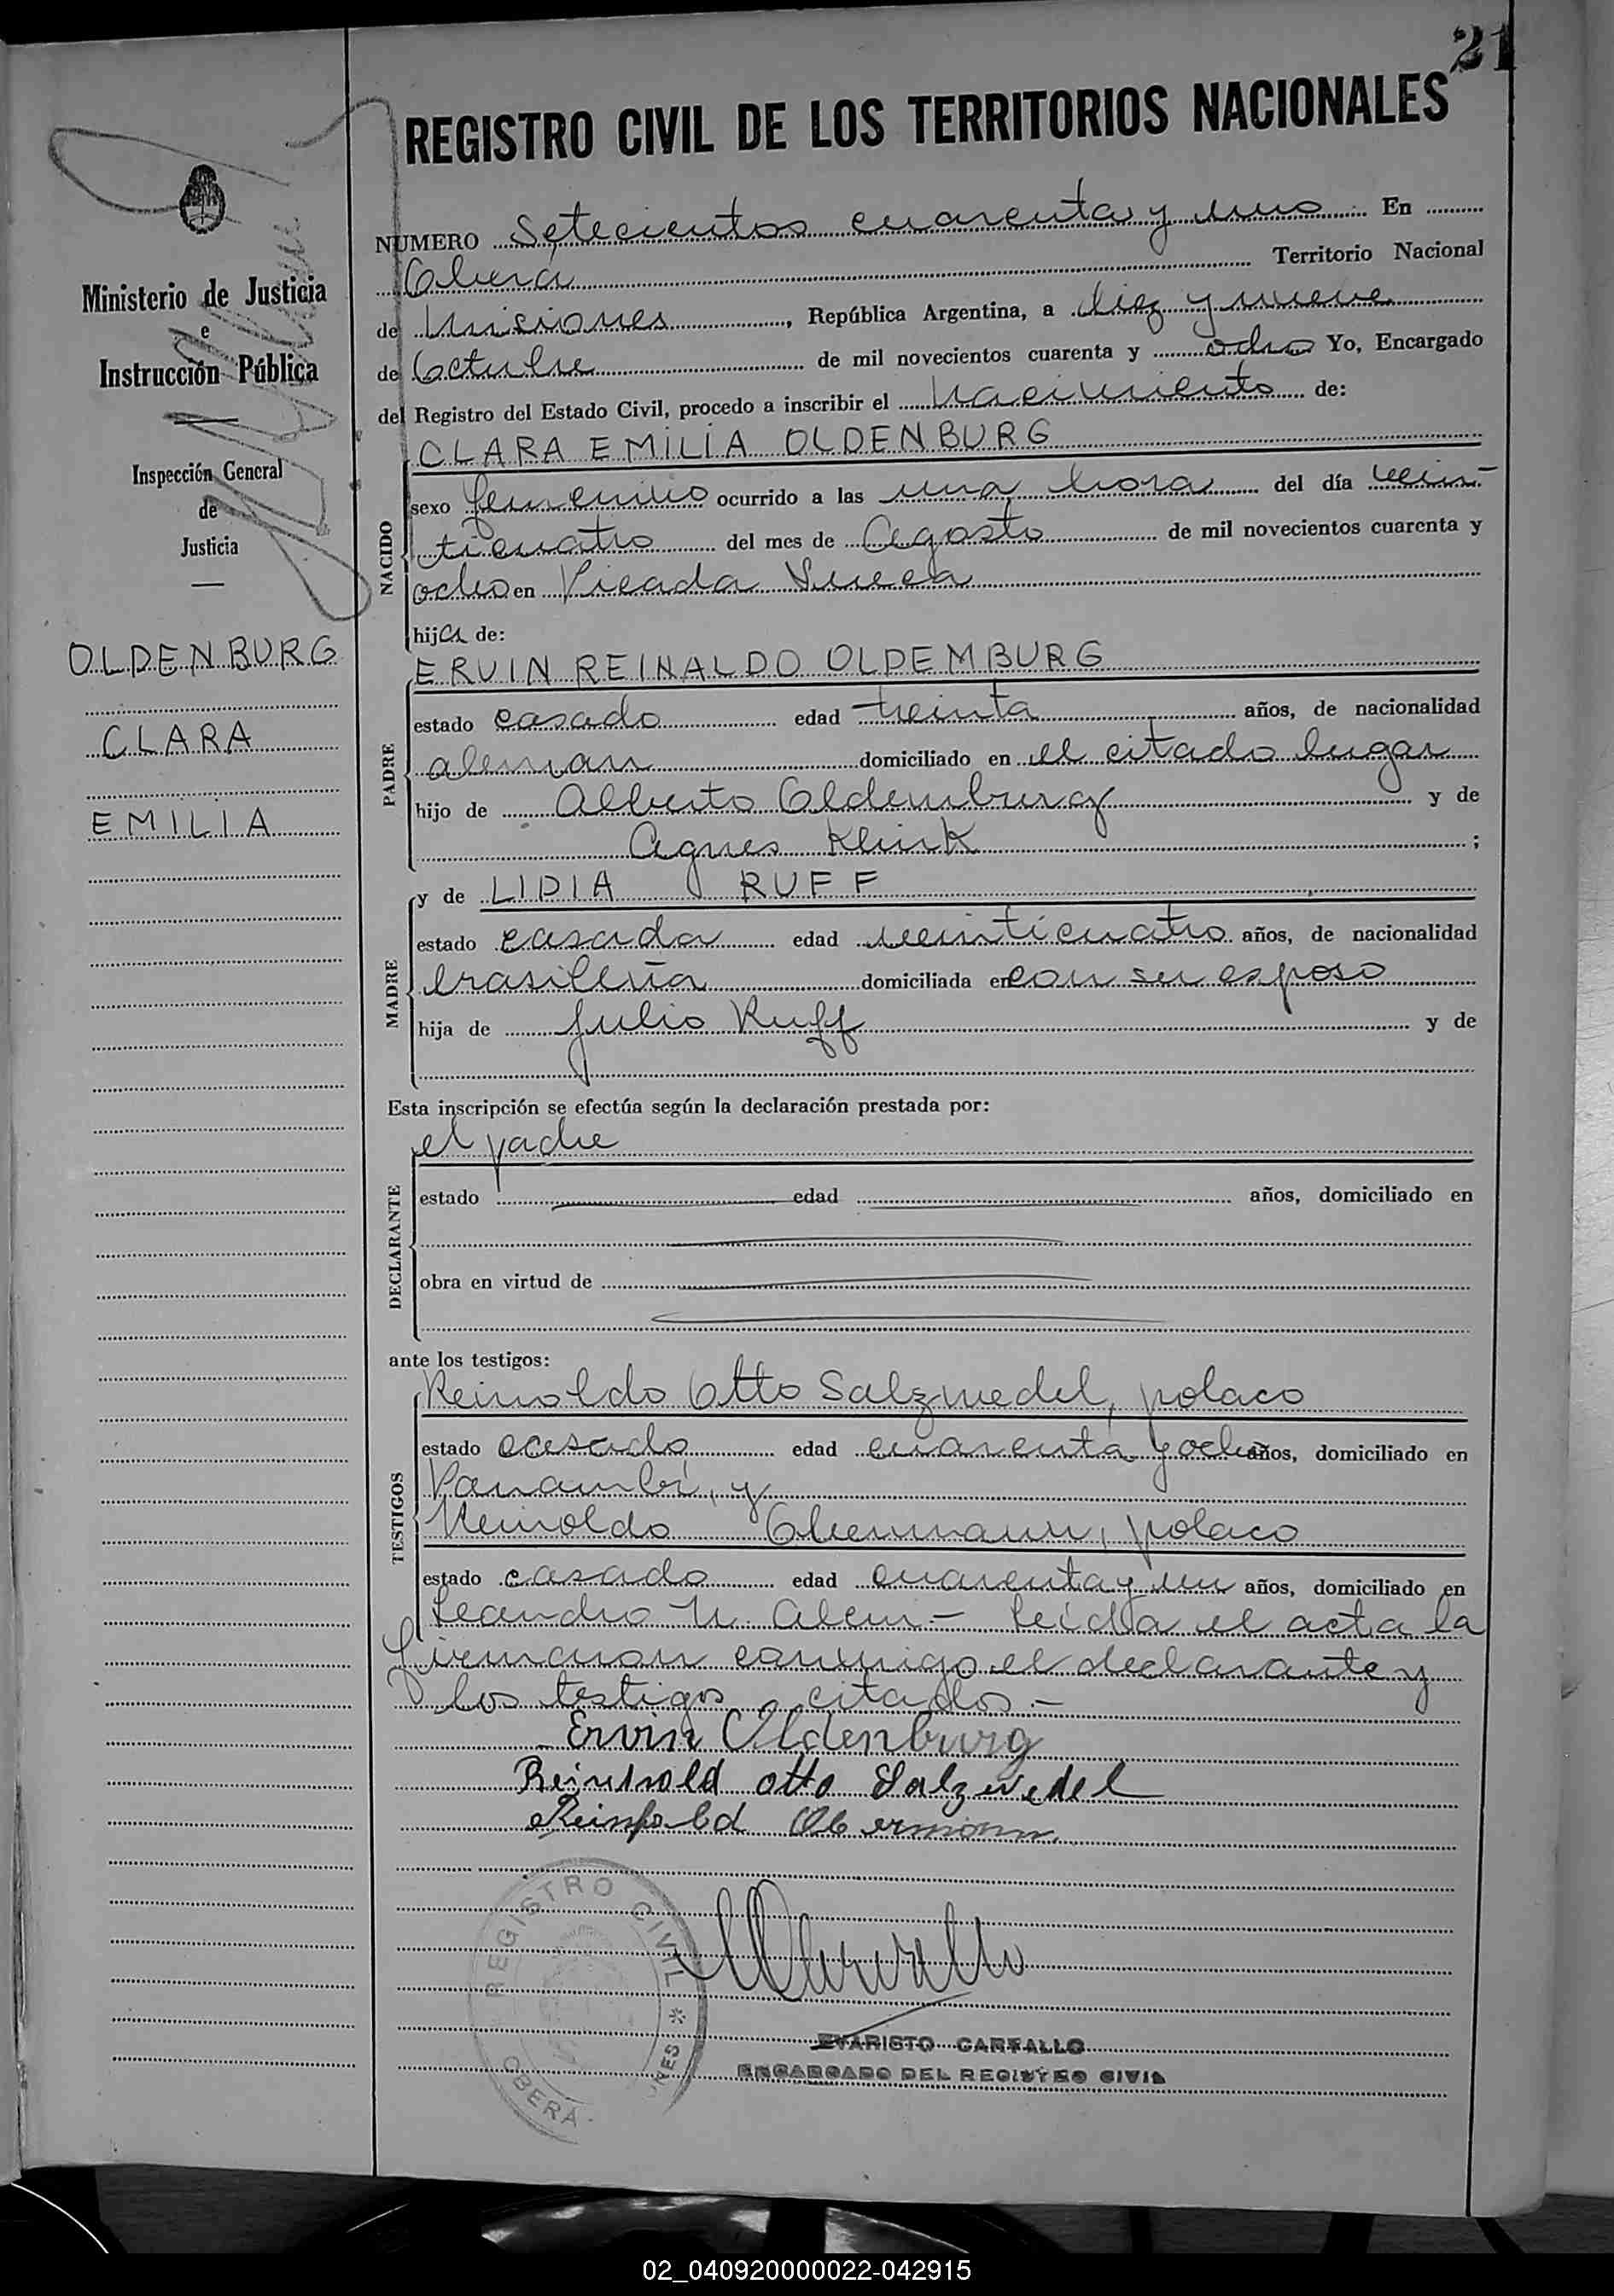 21
REGISTRO CIVIL DE LOS TERRITORIOS NACIONALES
Ministerio de Justicia
e
Instrucción Pública
Inspección General
de
Justicia
OLDENBURG
CLARA
EMILIA
NUMERO Setecientos cuarenta y uno En
Oberá Territorio Nacional
de Misiones, República Argentina, a diez y nueve
de Octubre de mil novecientos cuarenta y ocho Yo, Encargado
del Registro del Estado Civil, procedo a inscribir el nacimiento de:
CLARA EMILIA OLDENBURG
NACIDO
sexo femenino ocurrido a las una hora del día vein-
ticuatro del mes de Agosto de mil novecientos cuarenta y
ocho en Picada Sueca
hija de:
ERVIN REINALDO OLDEMBURG
PADRE
estado casado edad treinta años, de nacionalidad
aleman domiciliado en el citado lugar
hijo de Alberto Oldemburg y de
Agnes Klink ;
y de LIDIA RUFF
MADRE
estado casada edad veinticuatro años, de nacionalidad
brasileña domiciliada en con su esposo
hija de Julio Ruff y de
Esta inscripción se efectúa según la declaración prestada por:
el padre
DECLARANTE
estado edad años, domiciliado en
obra en virtud de
ante los testigos:
Reinoldo Otto Salzwedel, polaco
TESTIGOS
estado casado edad cuarenta y ocho años, domiciliado en
Panambí, y
Reinoldo Obermann, polaco
estado casado edad cuarenta y un años, domiciliado en
Leandro N. Alem.- Leída el acta la
firmaron conmigo el declarante y
los testigos citados.-
Ervin Oldenburg
Reinhold Otto Salzwedel
Reinhold Obermann
REGISTRO CIVIL
OBERÁ
EVARISTO CARVALLO
ENCARGADO DEL REGISTRO CIVIL
02_040920000022-042915